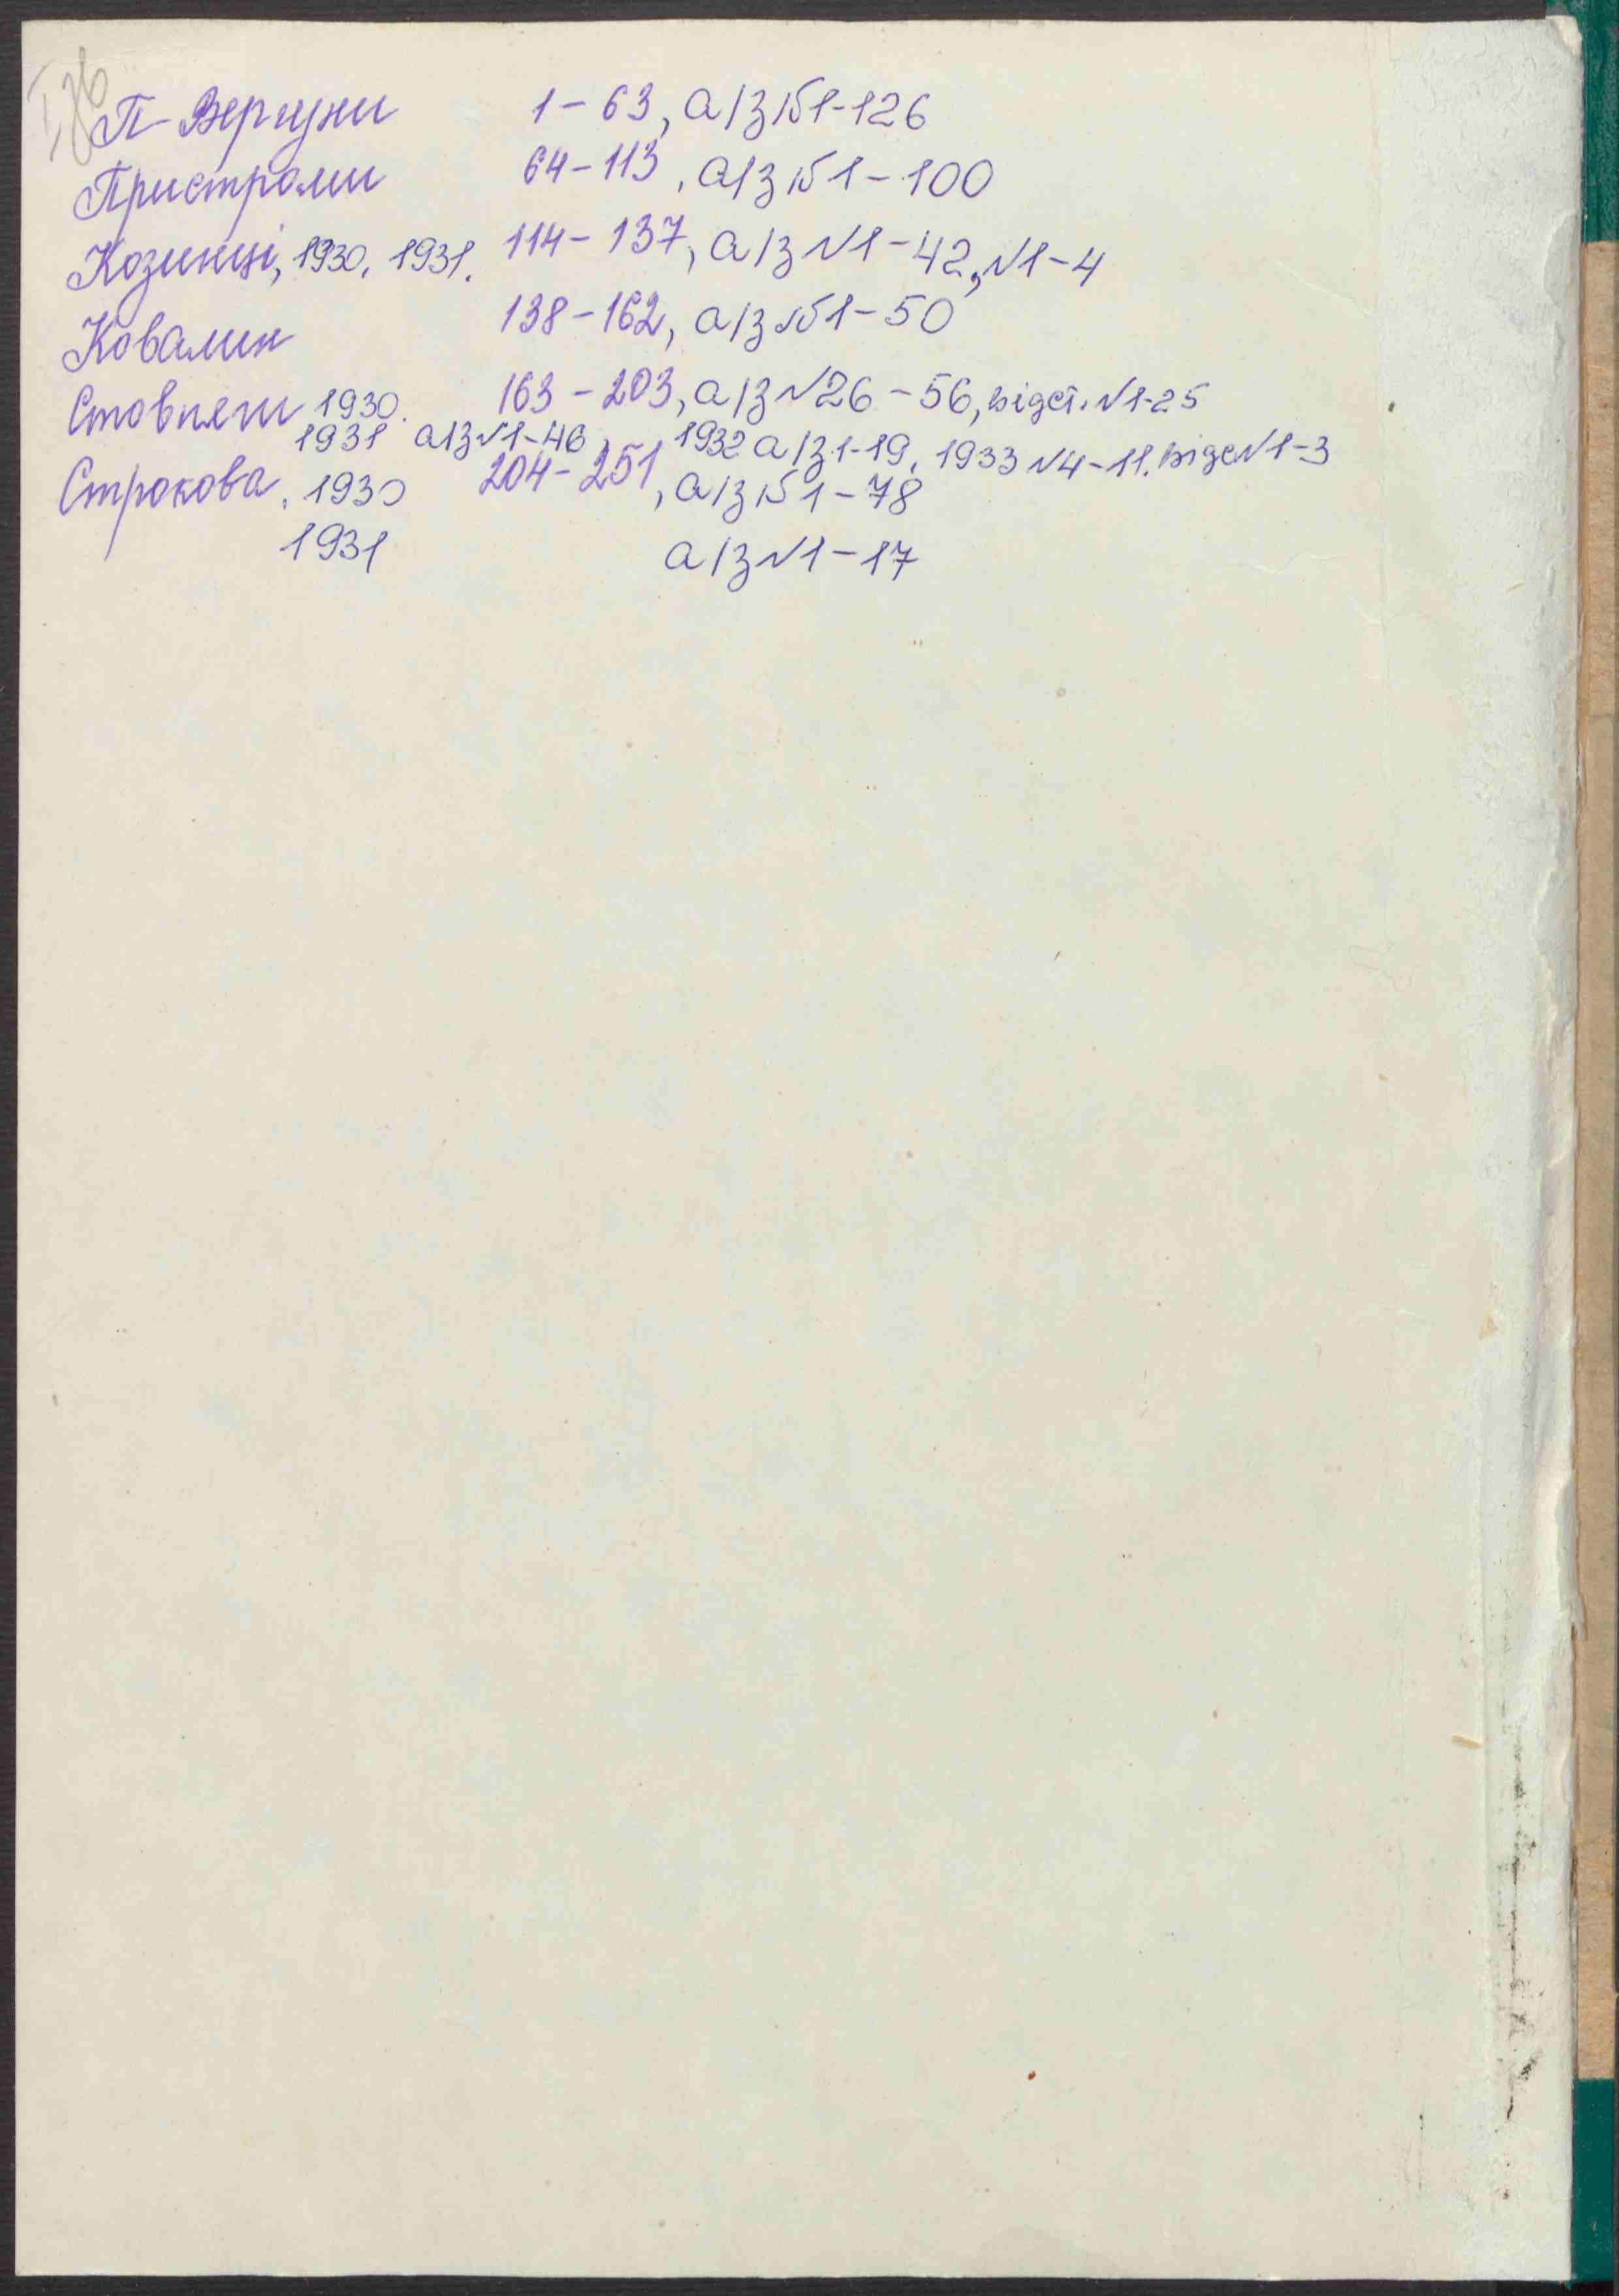 П-Вергуни 1 – 63, а/з №1-126
Пристроми 64-113, а/з №1-100
Козинці, 1930, 1931. 114-137, а/з №1-42, №1-4
Ковалин 138-162, а/з №1-50
Стовпяги 1930. 163-203, а/з №26-56, відст. №1-25
1931 а/з №1-46 1932 а/з 1-19, 1933 №4-11. відс №1-3
Строкова, 1930 204-251, а/з №1-78
1931 а/з №1-17